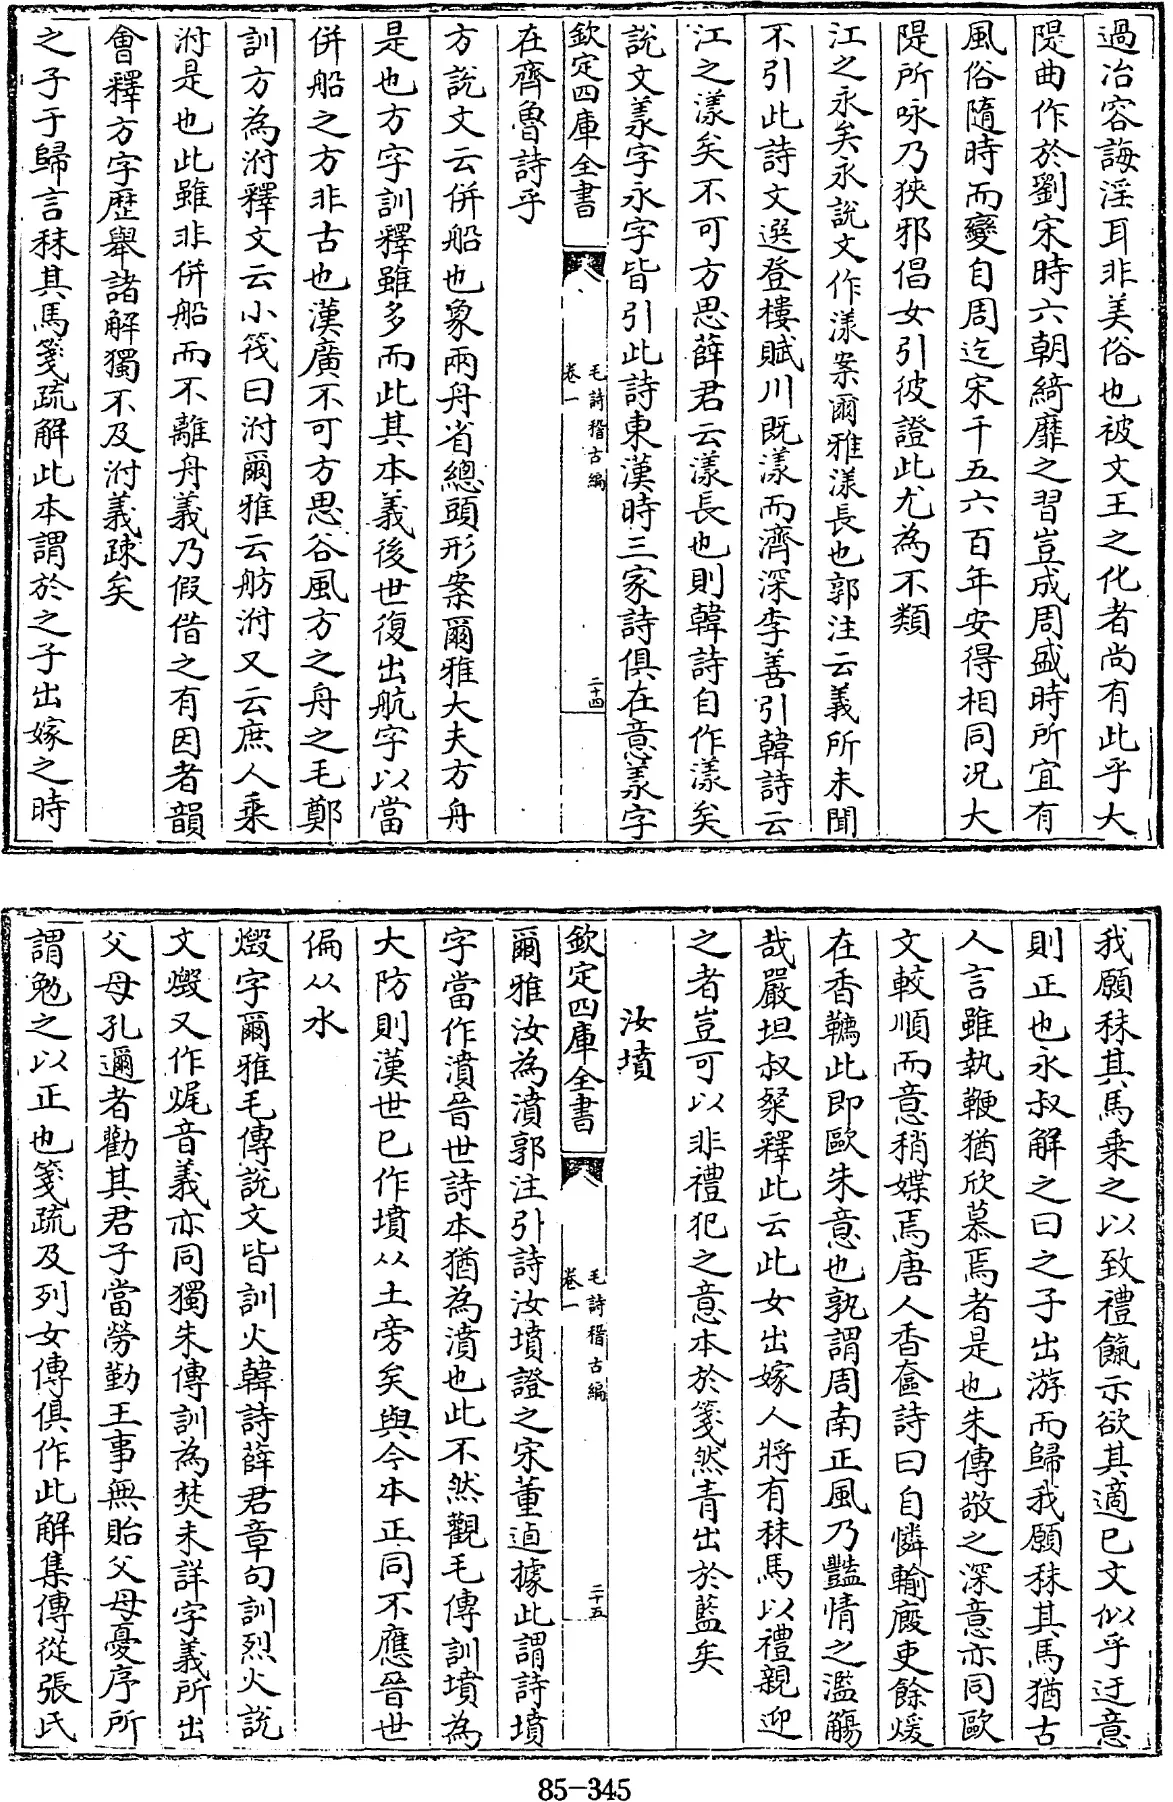 過冶容誨淫耳非美俗也被文王之化者尚有此乎大
隄曲作於劉宋時六朝綺靡之習豈成周盛時所宜有
風俗隨時而變自周迄宋千五六百年安得相同况大
隄所咏乃狹邪倡女引彼證此尤為不類
江之永矣永説文作漾案爾雅漾長也郭注云義所未聞
不引此詩文選登樓賦川既漾而濟深李善引韓詩云
江之漾矣不可方思薛君云漾長也則韓詩自作漾矣
説文羕字永字皆引此詩東漢時三家詩俱在意羕字
欽定四庫全書
毛詩稽古編
卷一
二十四
在齊魯詩乎
方説文云併船也象兩舟省總頭形案爾雅大夫方舟
是也方字訓釋雖多而此其本義後世復出航字以當
併船之方非古也漢廣不可方思谷風方之舟之毛鄭
訓方為泭釋文云小筏曰泭爾雅云舫泭又云庶人乘
泭是也此雖非併船而不離舟義乃假借之有因者韻
會釋方字歴舉諸解獨不及泭義疎矣
之子于歸言秣其馬箋疏解此本謂於之子出嫁之時
我願秣其馬乗之以致禮餼示欲其適已文似乎迂意
則正也永叔解之曰之子出游而歸我願秣其馬猶古
人言雖執鞭猶欣慕焉者是也朱傳敬之深意亦同歐
文較順而意稍媟焉唐人香奩詩曰自憐輸廐吏餘煖
在香韉此即歐朱意也孰謂周南正風乃豔情之濫觴
哉嚴坦叔粲釋此云此女出嫁人將有秣馬以禮親迎
之者豈可以非禮犯之意本於箋然青出於藍矣
汝墳
欽定四庫全書
毛詩稽古編
卷一
二十五
爾雅汝為濆郭注引詩汝墳證之宋董逌據此謂詩墳
字當作濆晉世詩本猶為濆也此不然觀毛傳訓墳為
大防則漢世已作墳从土旁矣與今本正同不應晉世
偏从水
燬字爾雅毛傳説文皆訓火韓詩薛君章句訓烈火説
文燬又作烜音義亦同獨朱傳訓為焚未詳字義所出
父母孔邇者勸其君子當勞勤王事無貽父母憂序所
謂勉之以正也箋疏及列女傳俱作此解集傳從張氏
85-345